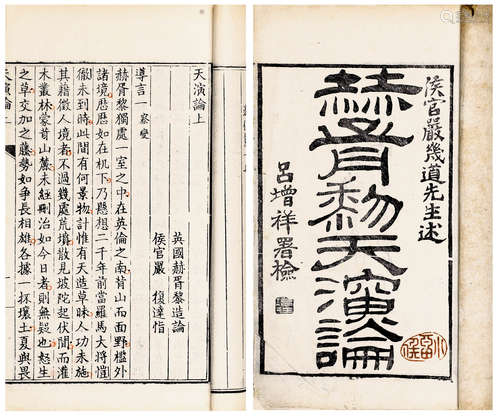 侯官嚴幾道先生述
赫胥黎天演論
呂增祥署檢
天演論上
英國赫胥黎造論
侯官嚴 復達恉
導言一 察變
赫胥黎獨處一室之中在英倫之南背山而面野檻外
諸境歷歷如在机下乃懸想二千年前當羅馬大將愷
徹未到時此間有何景物計惟有天造草昧人功未施
其籍徵人境者不過幾處荒墳散見坡陀起伏間而灌
木叢林蒙茸山麓未經刪治如今日者則無疑也怒生
之草交加之藤勢如爭長相雄各據一抔壤土夏與畏
天演論上